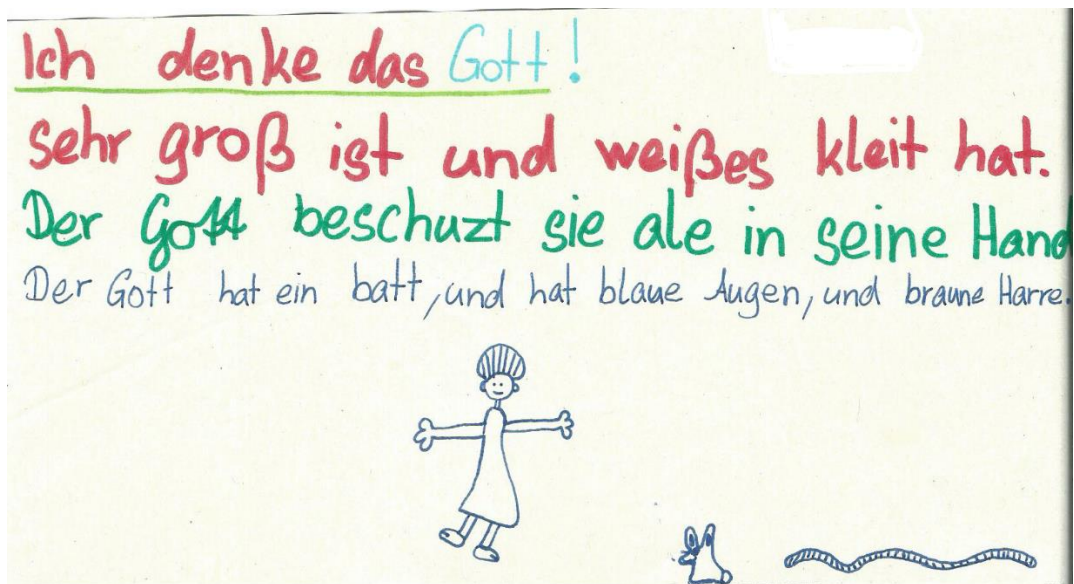 Ich denke das Gott!
sehr groß ist und weißes kleit hat.
Der Gott beschuzt sie ale in seine Hand
Der Gott hat ein batt, und hat blaue Augen, und braune Harre.